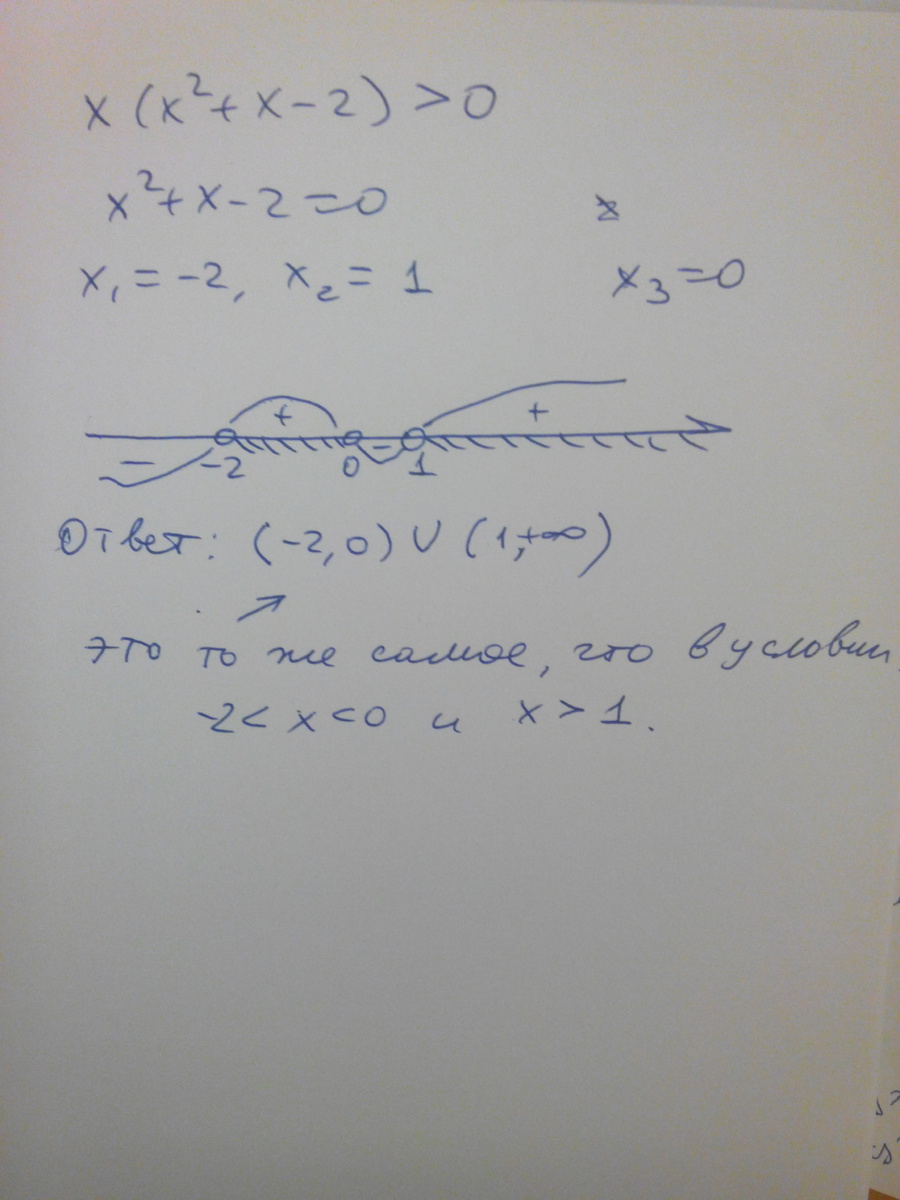 x(x²+x-2)>0
x²+x-2=0
x₁=-2, x₂=1 x₃=0
+ +
- -
-2 0 1
Ответ: (-2,0)∪(1,+∞)
это то же самое, что в условии,
-2<x<0 и x>1.